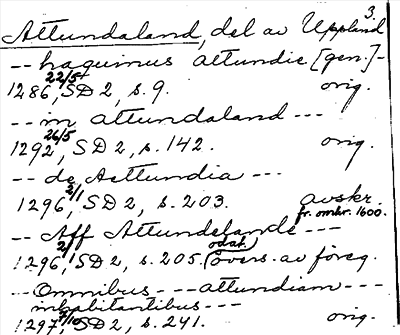 3.
Attundaland, del av Uppland
-- haquinus attundie [gen.] --
1286 22/5, SD 2, s. 9. orig.
-- in attundaland ---
1292 26/5, SD 2, s. 142. orig.
-- de Attundia ---
1296 2/1, SD 2, s. 203. avskr. fr. omkr. 1600.
-- Aff Attundelande ---
1296 2/1, SD 2, s. 205. (odat. övers. av föreg.
-- Omnibus --- attundiam ---
inhabitantibus ---
1297, SD 2, s. 241. orig.